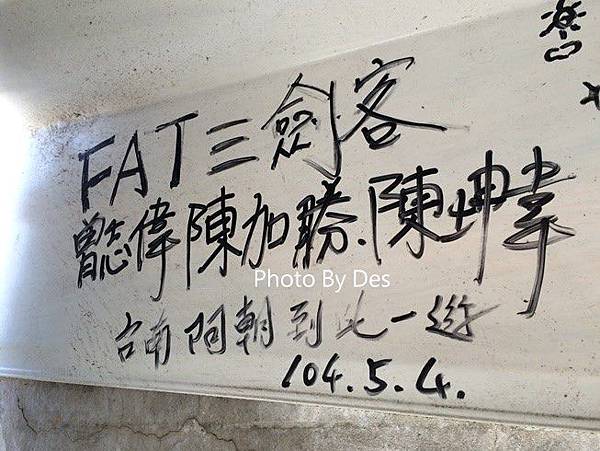 FAT三劍客
曾志偉 陳加勝.陳坤葦
Photo By Des
台南阿朝到此一遊
104.5.4.